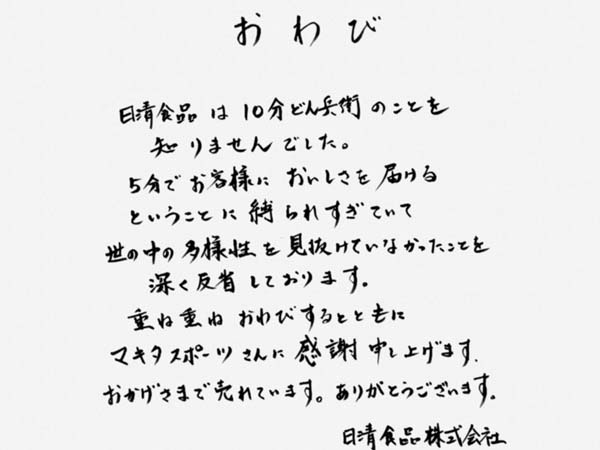 おわび
日清食品は10分どん兵衛のことを
知りませんでした。
5分でお客様においしさを届ける
ということに縛られすぎていて
世の中の多様性を見抜けていなかったことを
深く反省しております。
重ね重ねおわびするとともに
マキタスポーツさんに感謝申し上げます.
おかげさまで売れています。ありがとうございます。
日清食品株式会社